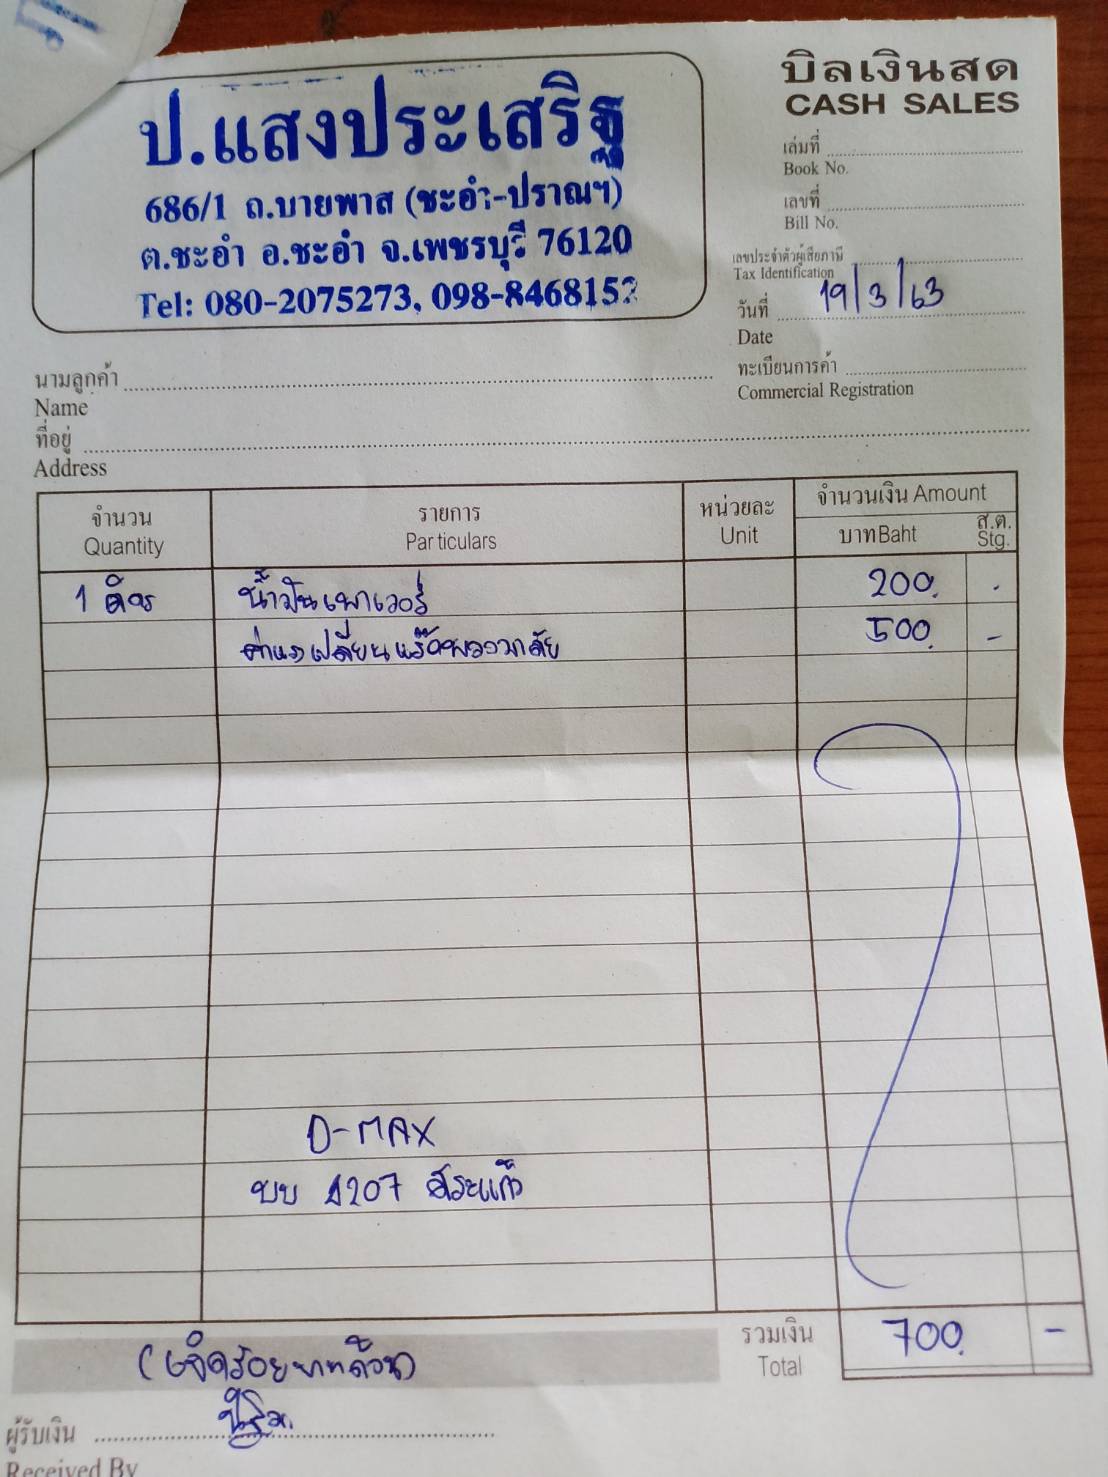 ป.แสงประเสริฐ
686/1 ถ.บายพาส (ชะอำ-ปราณฯ)
ต.ชะอำ อ.ชะอำ จ.เพชรบุรี 76120
Tel: 080-2075273, 098-8468152
บิลเงินสด
CASH SALES
เล่มที่
Book No.
เลขที่
Bill No.
เลขประจำตัวผู้เสียภาษี
Tax Identification
วันที่ 19/3/63
Date
ทะเบียนการค้า
Commercial Registration
นามลูกค้า
Name
ที่อยู่
Address
จำนวน รายการ หน่วยละ จำนวนเงิน Amount
Quantity Particulars Unit บาท Baht ส.ต. Stg.
1 ลิตร น้ำมันเพาเวอร์ 200. -
ค่าแรงเปลี่ยนแร็คพวงมาลัย 500. -
D-MAX
บบ 4207 สระแก้ว
รวมเงิน 700. -
Total
(เจ็ดร้อยบาทถ้วน)
ผู้รับเงิน
Received By